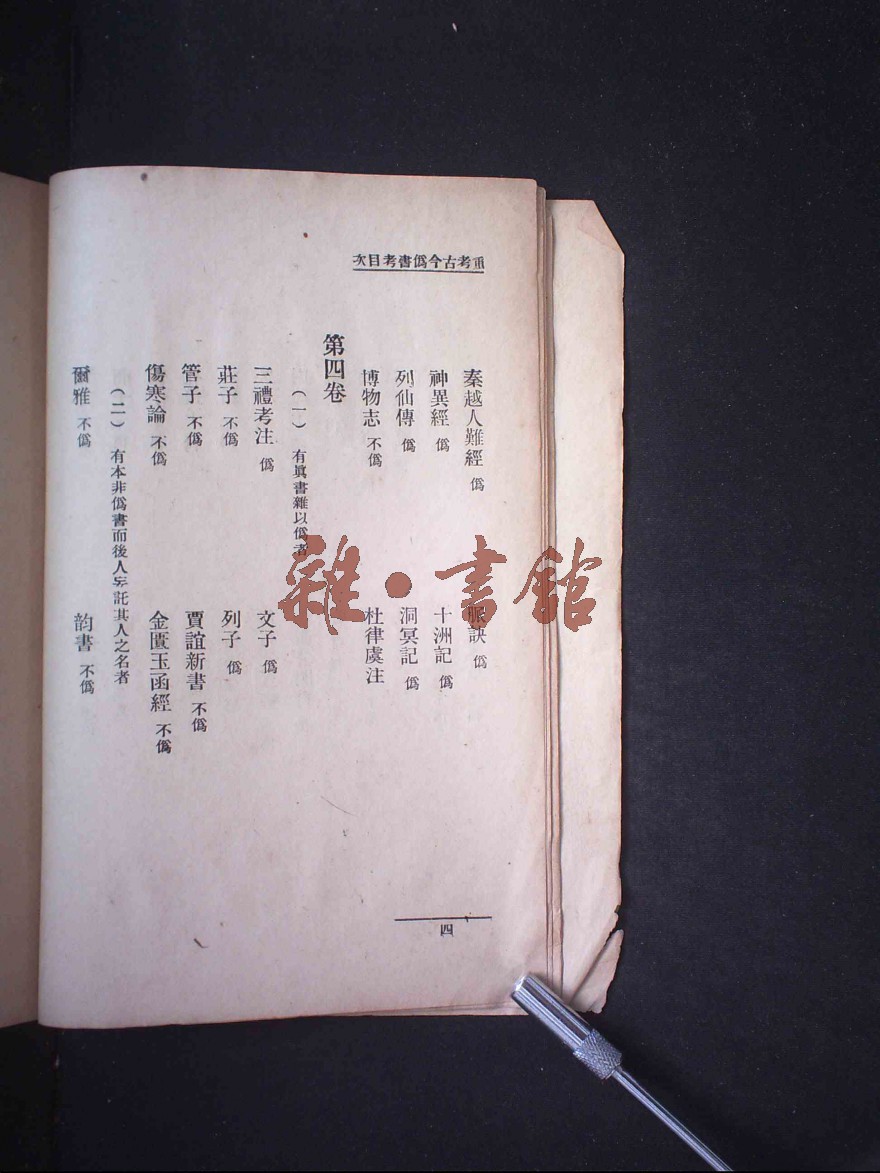 重考古今僞書考目次
秦越人難經 僞
脈訣 僞
神異經 僞
十洲記 僞
列仙傳 僞
洞冥記 僞
博物志 不僞
杜律虞注
第四卷
（一） 有眞書雜以僞者
三禮考注 僞
文子 僞
莊子 不僞
列子 僞
管子 不僞
賈誼新書 不僞
傷寒論 不僞
金匱玉函經 不僞
（二） 有本非僞書而後人妄託其人之名者
爾雅 不僞
韵書 不僞
四
雜·書館